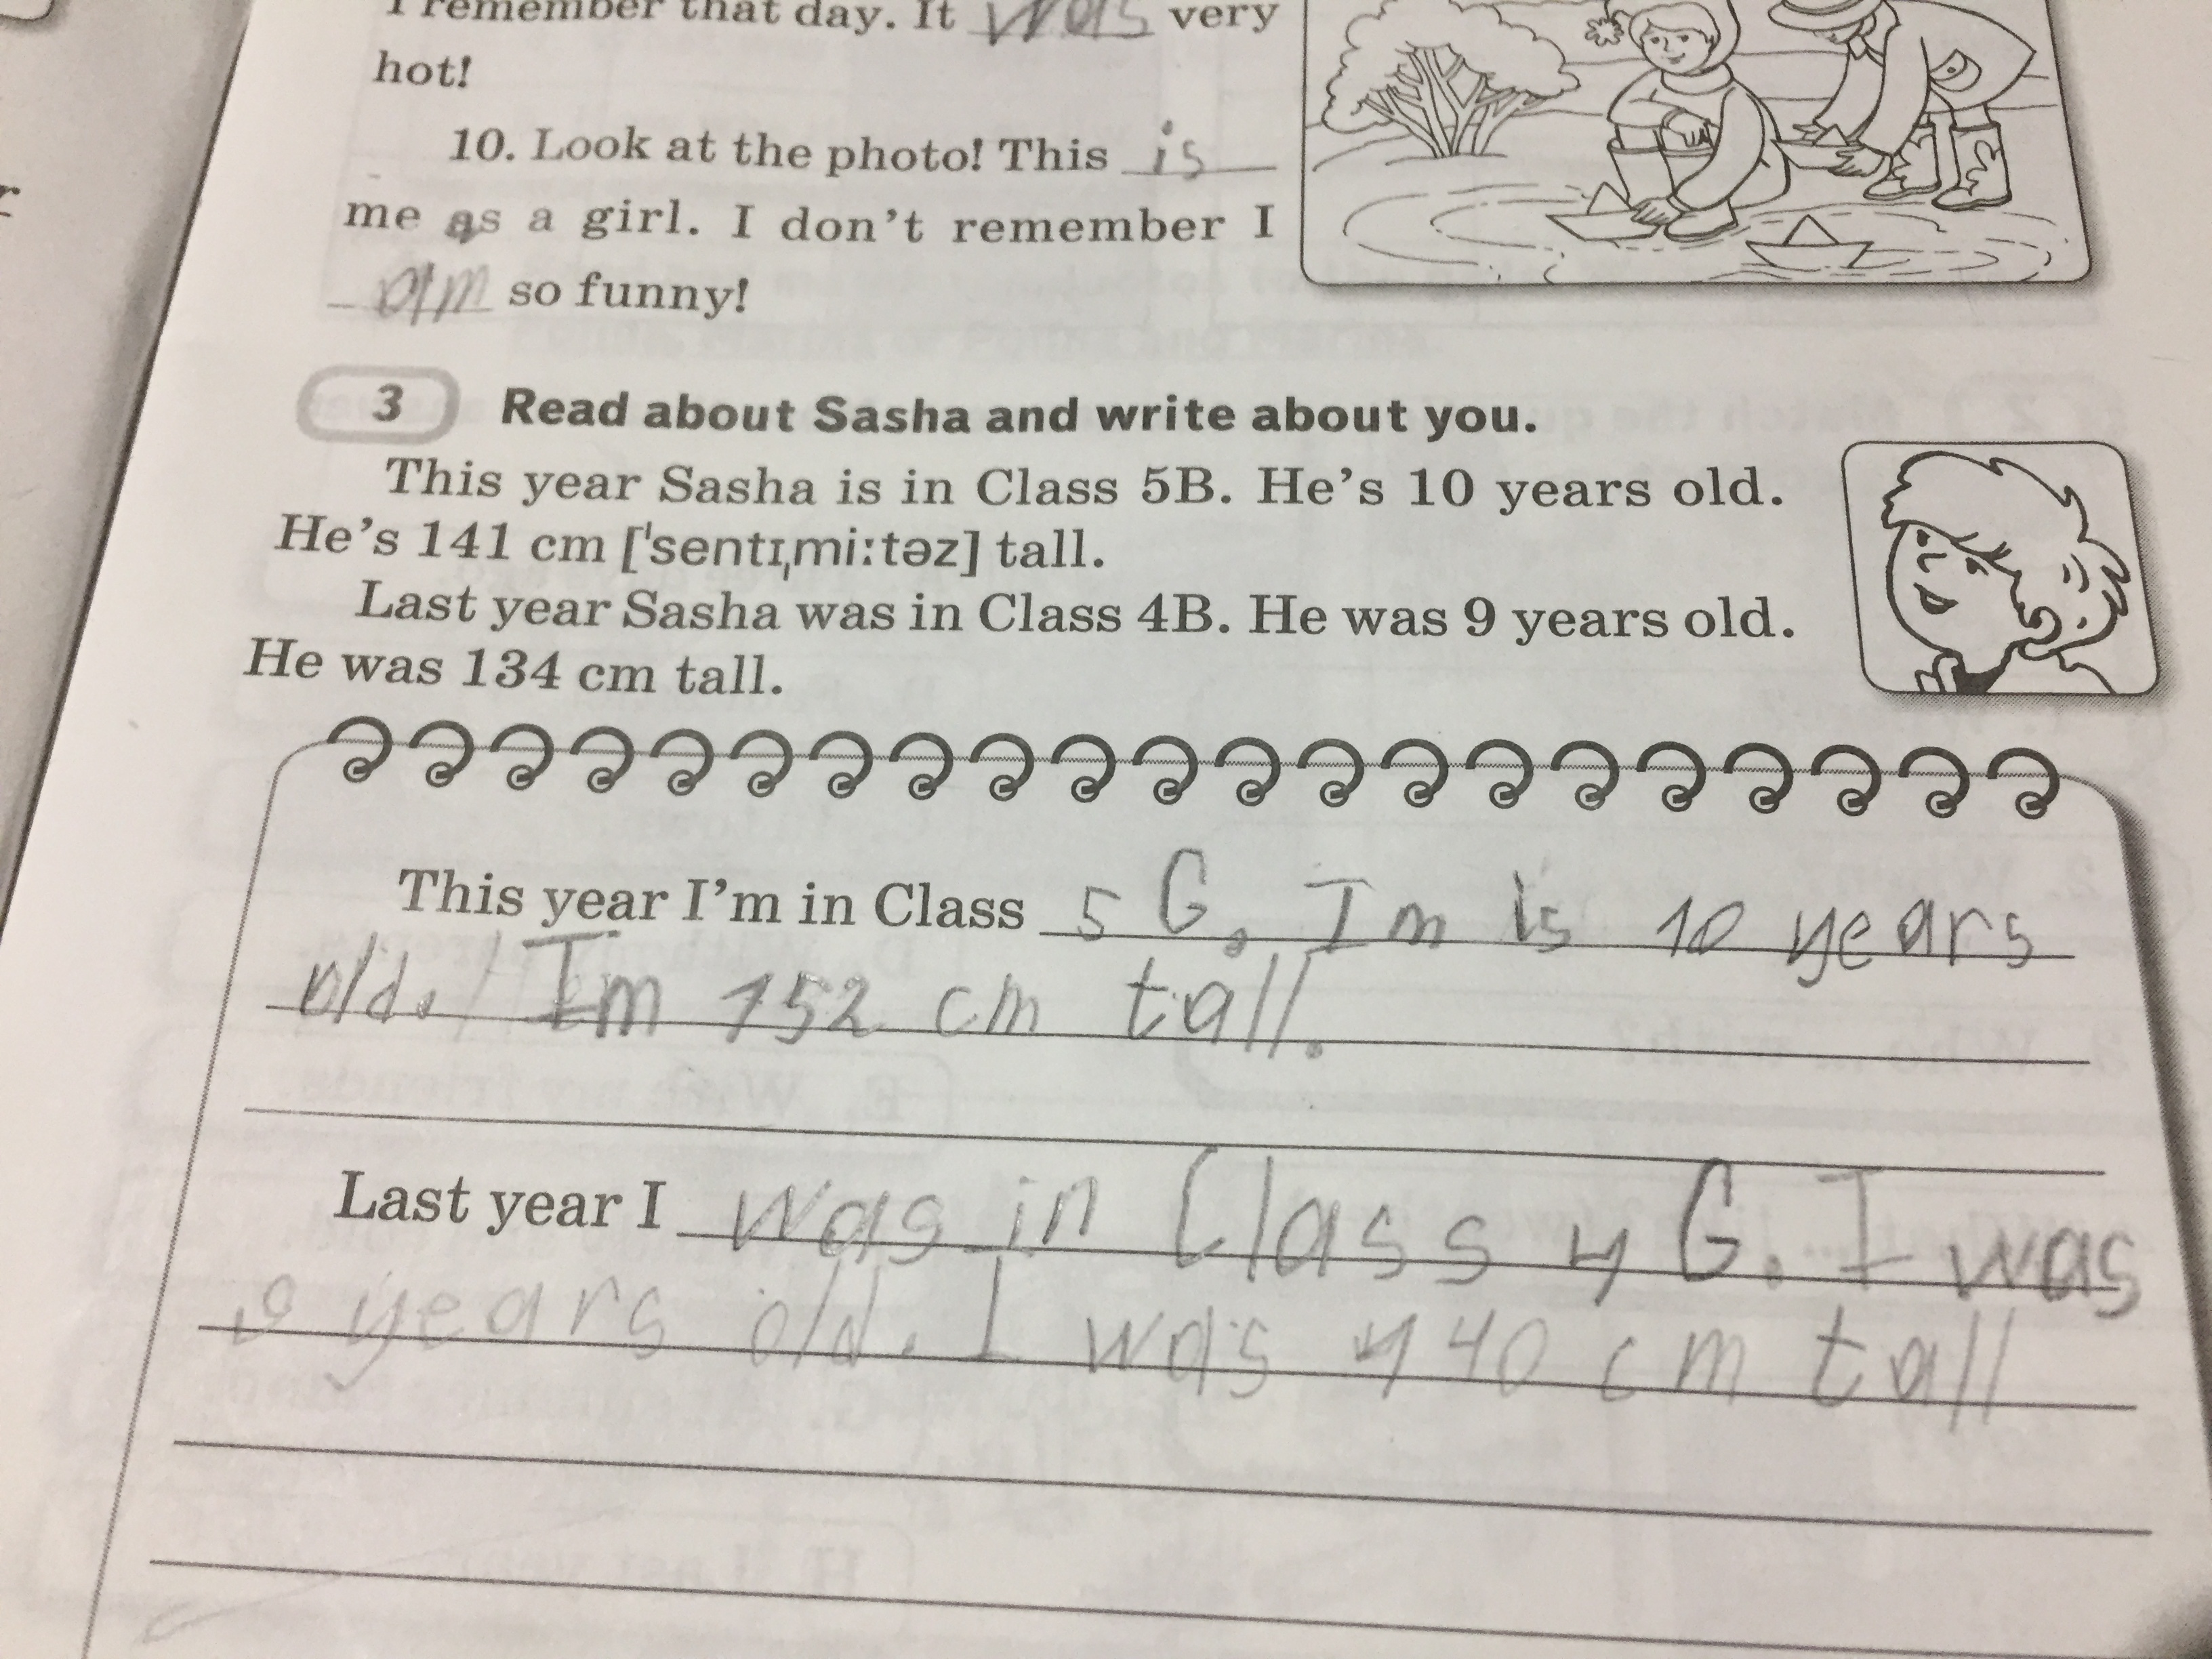 I remember that day. It was very
hot!
10. Look at the photo! This is
me as a girl. I don't remember I
am so funny!
3 Read about Sasha and write about you.
This year Sasha is in Class 5B. He's 10 years old.
He's 141 cm [ˈsentɪˌmiːtəz] tall.
Last year Sasha was in Class 4B. He was 9 years old.
He was 134 cm tall.
This year I'm in Class 5 G. Im is 10 years
old. Im 152 cm tall.
Last year I was in Class 4 G. I was
9 years old. I was 140 cm tall